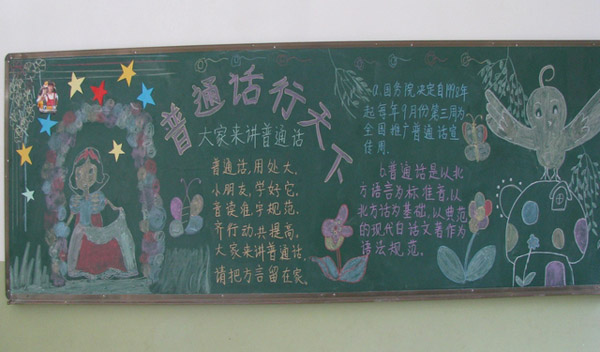 普通话行天下
大家来讲普通话
普通话,用处大。
小朋友,学好它。
音读准,字规范。
齐行动,共提高。
大家来讲普通话,
请把方言留在家。
a.国务院决定自1998年
起每年9月份第三周为
全国推广普通话宣
传周。
b.普通话是以北
京语言为标准音,以
北方话为基础,以典范
的现代白话文著作为
语法规范。